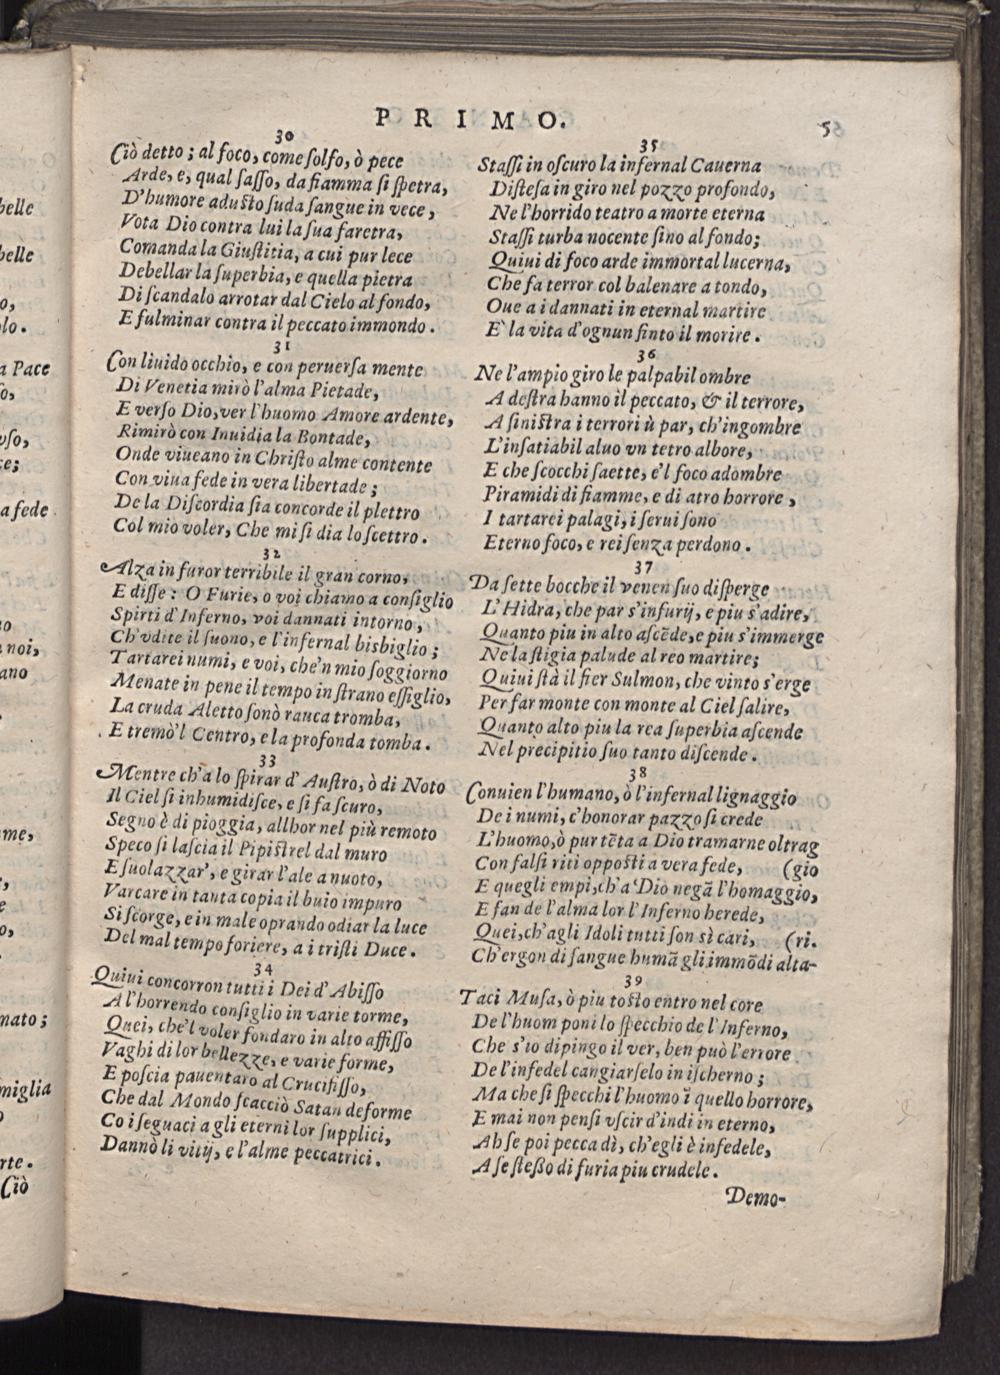 PRIMO. 5
30
Ciò detto; al foco, come ſolfo, ò pece
Arde, e, qual ſaſſo, da fiamma ſi ſpetra,
D'humore aduſto ſuda ſangue in vece,
Vota Dio contra lui la ſua faretra,
Comanda la Giuſtitia, a cui pur lece
Debellar la ſuperbia, e quella pietra
Di ſcandalo arrotar dal Cielo al fondo,
E fulminar contra il peccato immondo.
31
Con liuido occhio, e con peruerſa mente
Di Venetia mirò l'alma Pietade,
E verſo Dio, ver l'huomo Amore ardente,
Rimirò con Inuidia la Bontade,
Onde viueano in Chriſto alme contente
Con viua fede in vera libertade;
De la Diſcordia ſia concorde il plettro
Col mio voler, Che mi ſi dia lo ſcettro.
32
Alza in furor terribile il gran corno,
E diſſe: O Furie, o voi chiamo a conſiglio
Spirti d'Inferno, voi dannati intorno,
Ch'vdite il ſuono, e l'infernal bisbiglio;
Tartarei numi, e voi, che'n mio ſoggiorno
Menate in pene il tempo in ſtrano eſſiglio,
La cruda Aletto ſonò rauca tromba,
E tremò'l Centro, e la profonda tomba.
33
Mentre ch'a lo ſpirar d'Auſtro, ò di Noto
Il Ciel ſi inhumidiſce, e ſi fa ſcuro,
Segno è di pioggia, allhor nel più remoto
Speco ſi laſcia il Pipiſtrel dal muro
E ſuolazzar', e girar l'ale a nuoto,
Varcare in tanta copia il buio impuro
Si ſcorge, e in male oprando odiar la luce
Del mal tempo foriere, a i triſti Duce.
34
Quiui concorron tutti i Dei d'Abiſſo
A l'horrendo conſiglio in varie torme,
Quei, che'l voler fondaro in alto affiſſo
Vaghi di lor bellezze, e varie forme,
E poſcia pauentaro al Crucifiſſo,
Che dal Mondo ſcacciò Satan deforme
Co i ſeguaci a gli eterni lor ſupplici,
Dannò li vitij, e l'alme peccatrici.
35
Staſſi in oſcuro la infernal Cauerna
Diſteſa in giro nel pozzo profondo,
Ne l'horrido teatro a morte eterna
Staſſi turba nocente ſino al fondo;
Quiui di foco arde immortal lucerna,
Che fa terror col balenare a tondo,
Oue a i dannati in eternal martire
E' la vita d'ognun finto il morire.
36
Ne l'ampio giro le palpabil ombre
A deſtra hanno il peccato, & il terrore,
A ſiniſtra i terrori ù par, ch'ingombre
L'inſatiabil aluo vn tetro albore,
E che ſcocchi ſaette, e'l foco adombre
Piramidi di fiamme, e di atro horrore,
I tartarei palagi, i ſerui ſono
Eterno foco, e rei ſenza perdono.
37
Da ſette bocche il venen ſuo diſperge
L'Hidra, che par s'infurij, e piu s'adire,
Quanto piu in alto aſcẽde, e piu s'immerge
Ne la ſtigia palude al reo martire;
Quiui ſtà il fier Sulmon, che vinto s'erge
Per far monte con monte al Ciel ſalire,
Quanto alto piu la rea ſuperbia aſcende
Nel precipitio ſuo tanto diſcende.
38
Conuien l'humano, ò l'infernal lignaggio
De i numi, c'honorar pazzo ſi crede
L'huomo, ò pur tẽta a Dio tramarne oltrag
Con falſi riti oppoſti a vera fede, (gio
E quegli empi, ch'a Dio negã l'homaggio,
E fan de l'alma lor l'Inferno herede,
Quei, ch'agli Idoli tutti ſon sì cari, (ri.
Ch'ergon di ſangue humã gli immõdi alta-
39
Taci Muſa, ò piu toſto entro nel core
De l'huom poni lo ſpecchio de l'Inferno,
Che s'io dipingo il ver, ben può l'errore
De l'infedel cangiarſelo in iſcherno;
Ma che ſi ſpecchi l'huomo ĩ quello horrore,
E mai non penſi vſcir d'indi in eterno,
Ah ſe poi pecca dì, ch'egli è infedele,
A ſe ſteſſo di furia piu crudele.
Demo-
belle
belle
lo.
a Pace
a fede
noi,
ano
mato;
miglia
rte.
Ciò